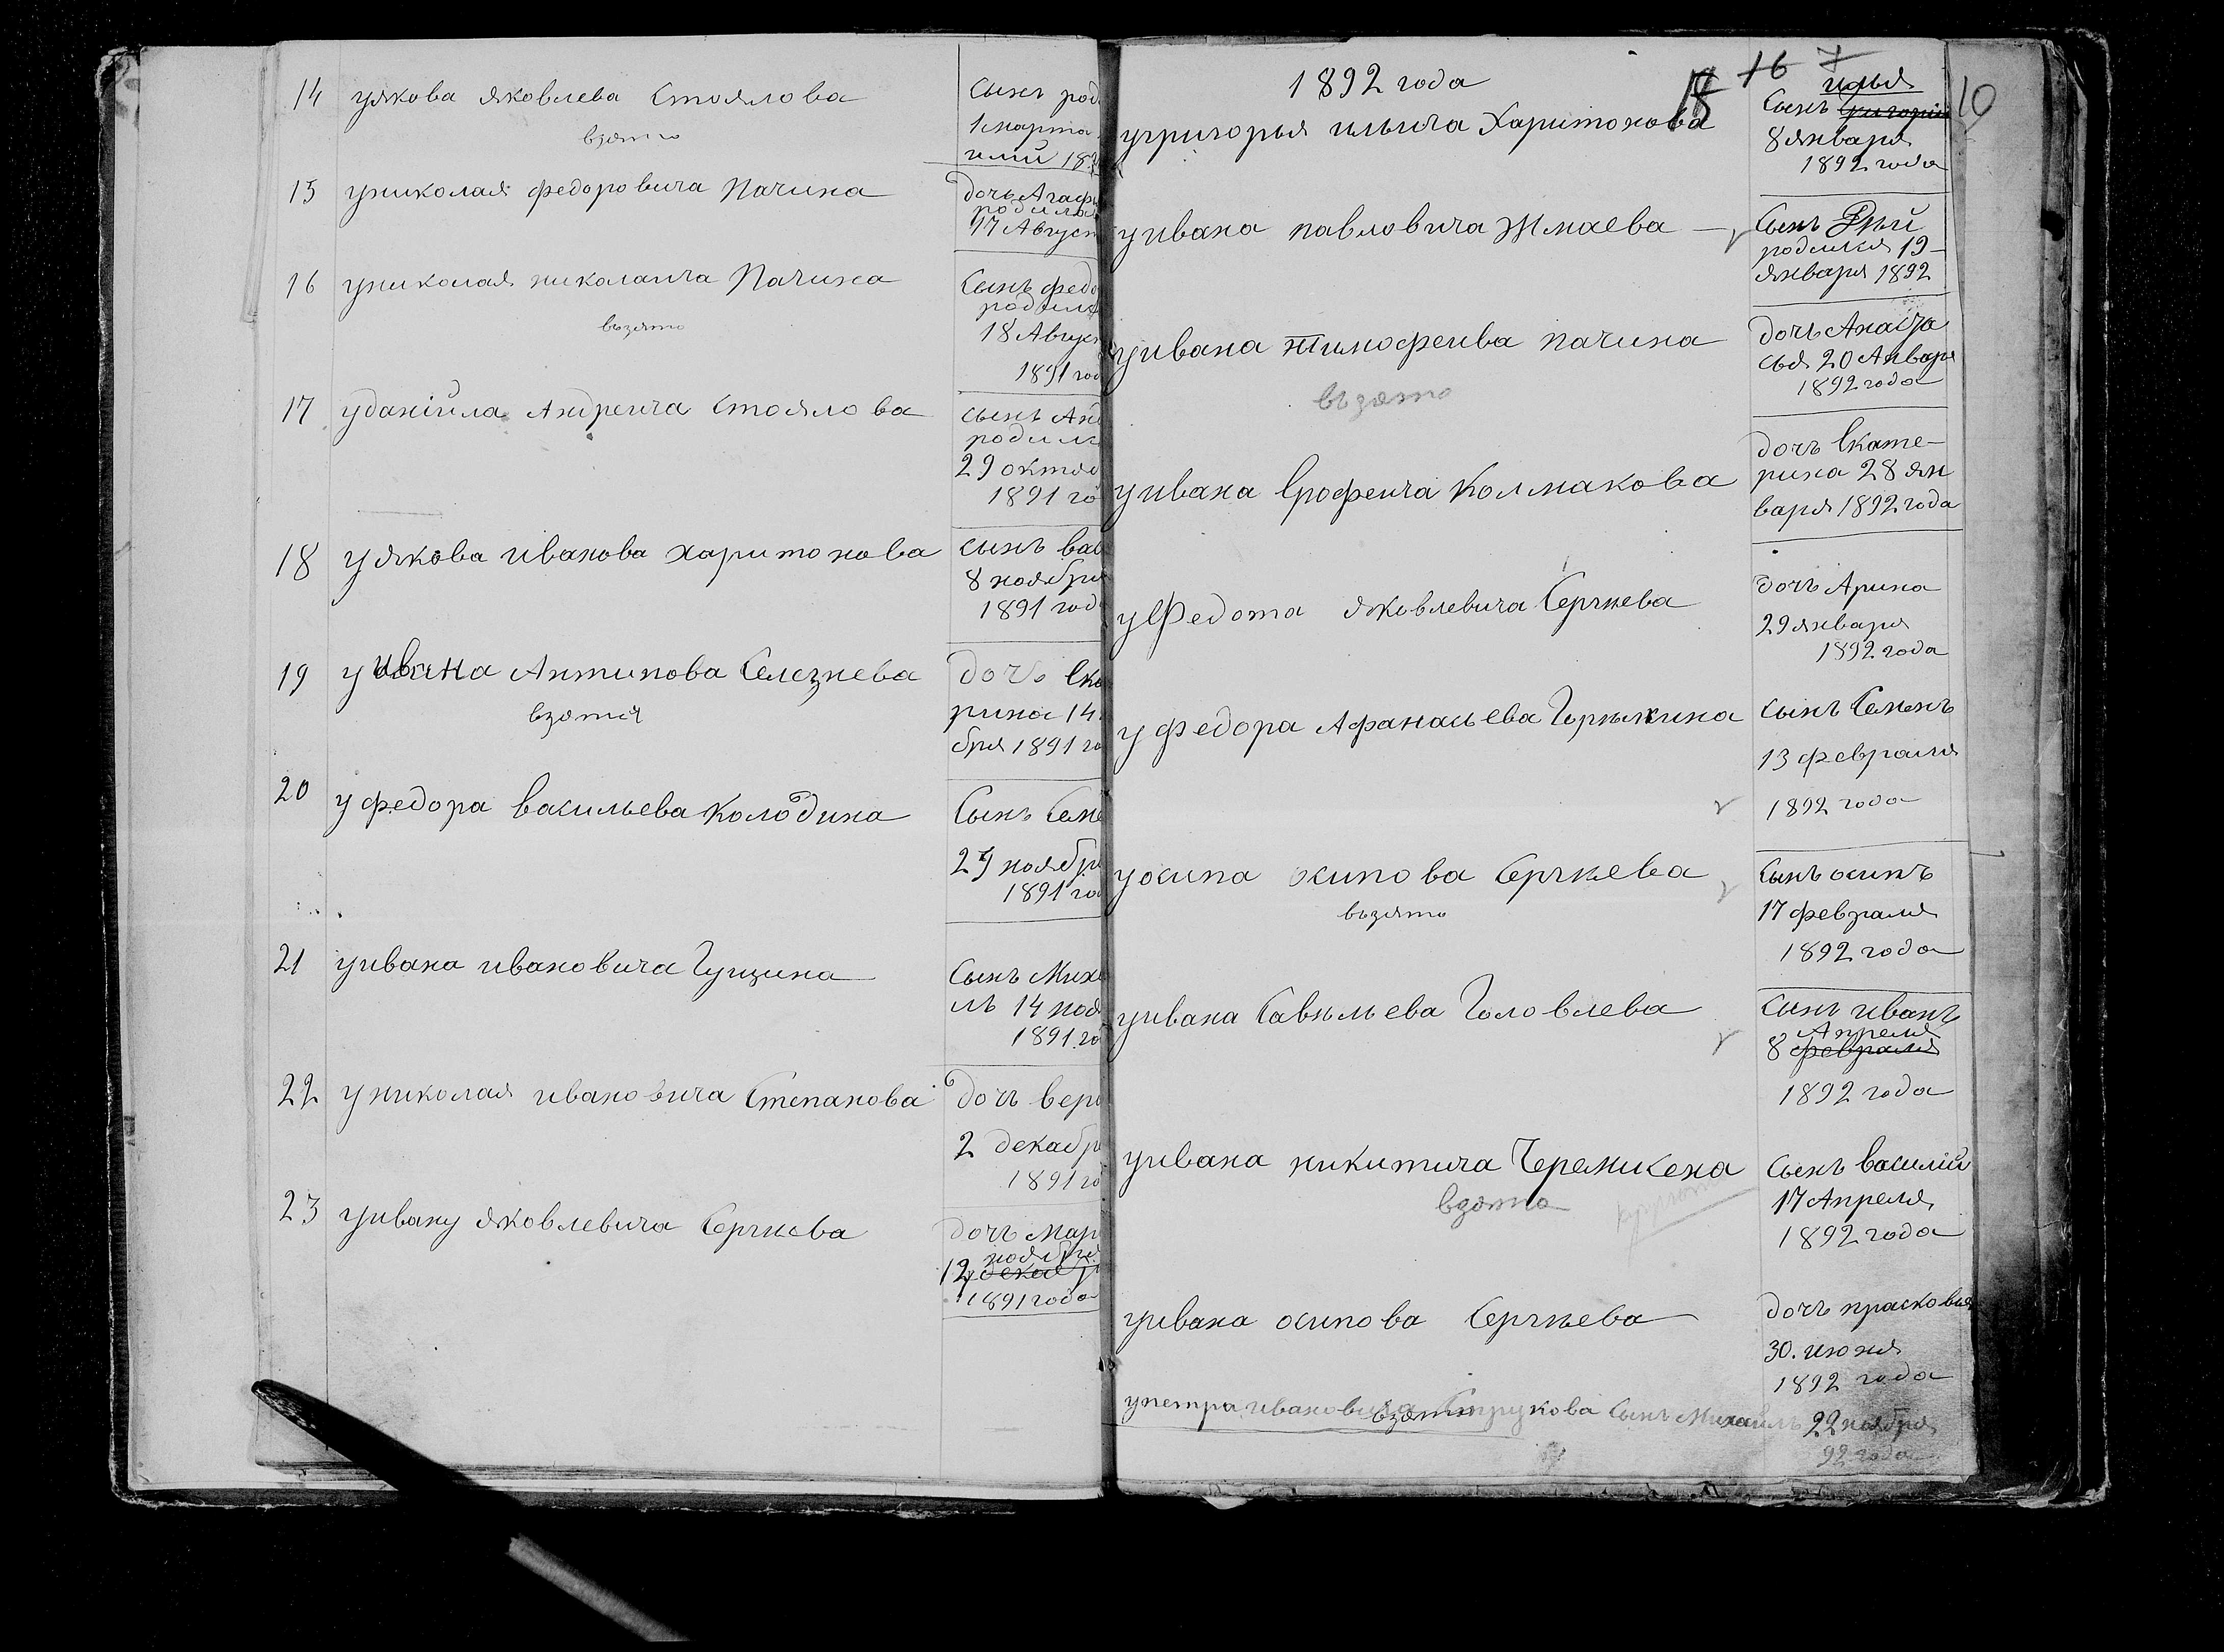 14 уякова яковлева Стоялова
взято
Сынъ род
1 марта
илий 18
15 униколая федоровича Пачина
дочь Агаф
родилас
17 Август
16 униколая николаича Пачина
възято
Сынъ федо
родилс
18 Август
1891 год
17 уданійла Андреича Стоялова
сынъ Ан
родилс
29 октя
1891 го
18 у якова иванова харитонова
сынъ вас
8 ноября
1891 год
19 у ивана Антипова Селезнева
взятія
дочь Ека
рина 14
бря 1891 го
20 у федора васильева Колодина
Сынъ Семе
29 ноябр
1891 го
21 уивана ивановича Гущина
Сынъ Миха
лъ 14 ноя
1891 го
22 у николая ивановича Степанова
дочь вер
2 декабр
1891 го
23 уивану яковлевича Сергнева
дочь Мар
ноября
12 декабр
1891 года
1892 года
18 16 7
10
угригорья ильича Харитонова
илья
Сынъ григорій
8 января
1892 года
уивана павловича Жмаева
Сынъ
родился 19
января 1892
уивана тимофеива пачина
възято
дочь Анаста
сья 20 Январ
1892 года
уивана Ерофеича Колмакова
дочь Екате-
рина 28 ян
варя 1892 года
уФедота яковлевича Сергнева
дочь Арина
29 января
1892 года
у федора Афанасьева Горяинина
сынъ Семенъ
13 февраля
1892 года
уосипа осипова Сергнева
възято
Сынъ осипъ
17 февраля
1892 года
уивана Савельева Головлева
Сынъ иванъ
Апреля
8 февраля
1892 года
уивана никитича Черемисена
взято
сынъ василий
17 Апреля
1892 года
уивана осипова Сергнева
дочь прасковья
30. июня
1892 года
упетра ивановича Струкова Сынъ Михаилъ 22 ноября
взято
92 года